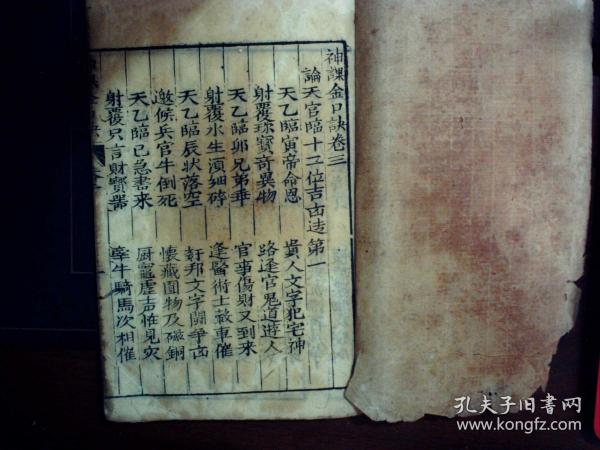 神課金口訣卷三
論天官臨十二位吉凶造第一
天乙臨寅帝命恩 貴人文字犯宅神
射覆珎寶竒異物 路逢官鬼道遊人
天乙臨卯兄弟乖 官事傷財又到來
射覆水生須細碎 逢醫術士載車催
天乙臨辰狀落空 文字鬪爭凶
邀候兵官牛倒死 懷藏圓物及磁銅
天乙臨巳急書來 厨竈虛声怪見灾
射覆只言財寶器 牽牛騎馬次相催
孔夫子旧书网
www.kongfz.com